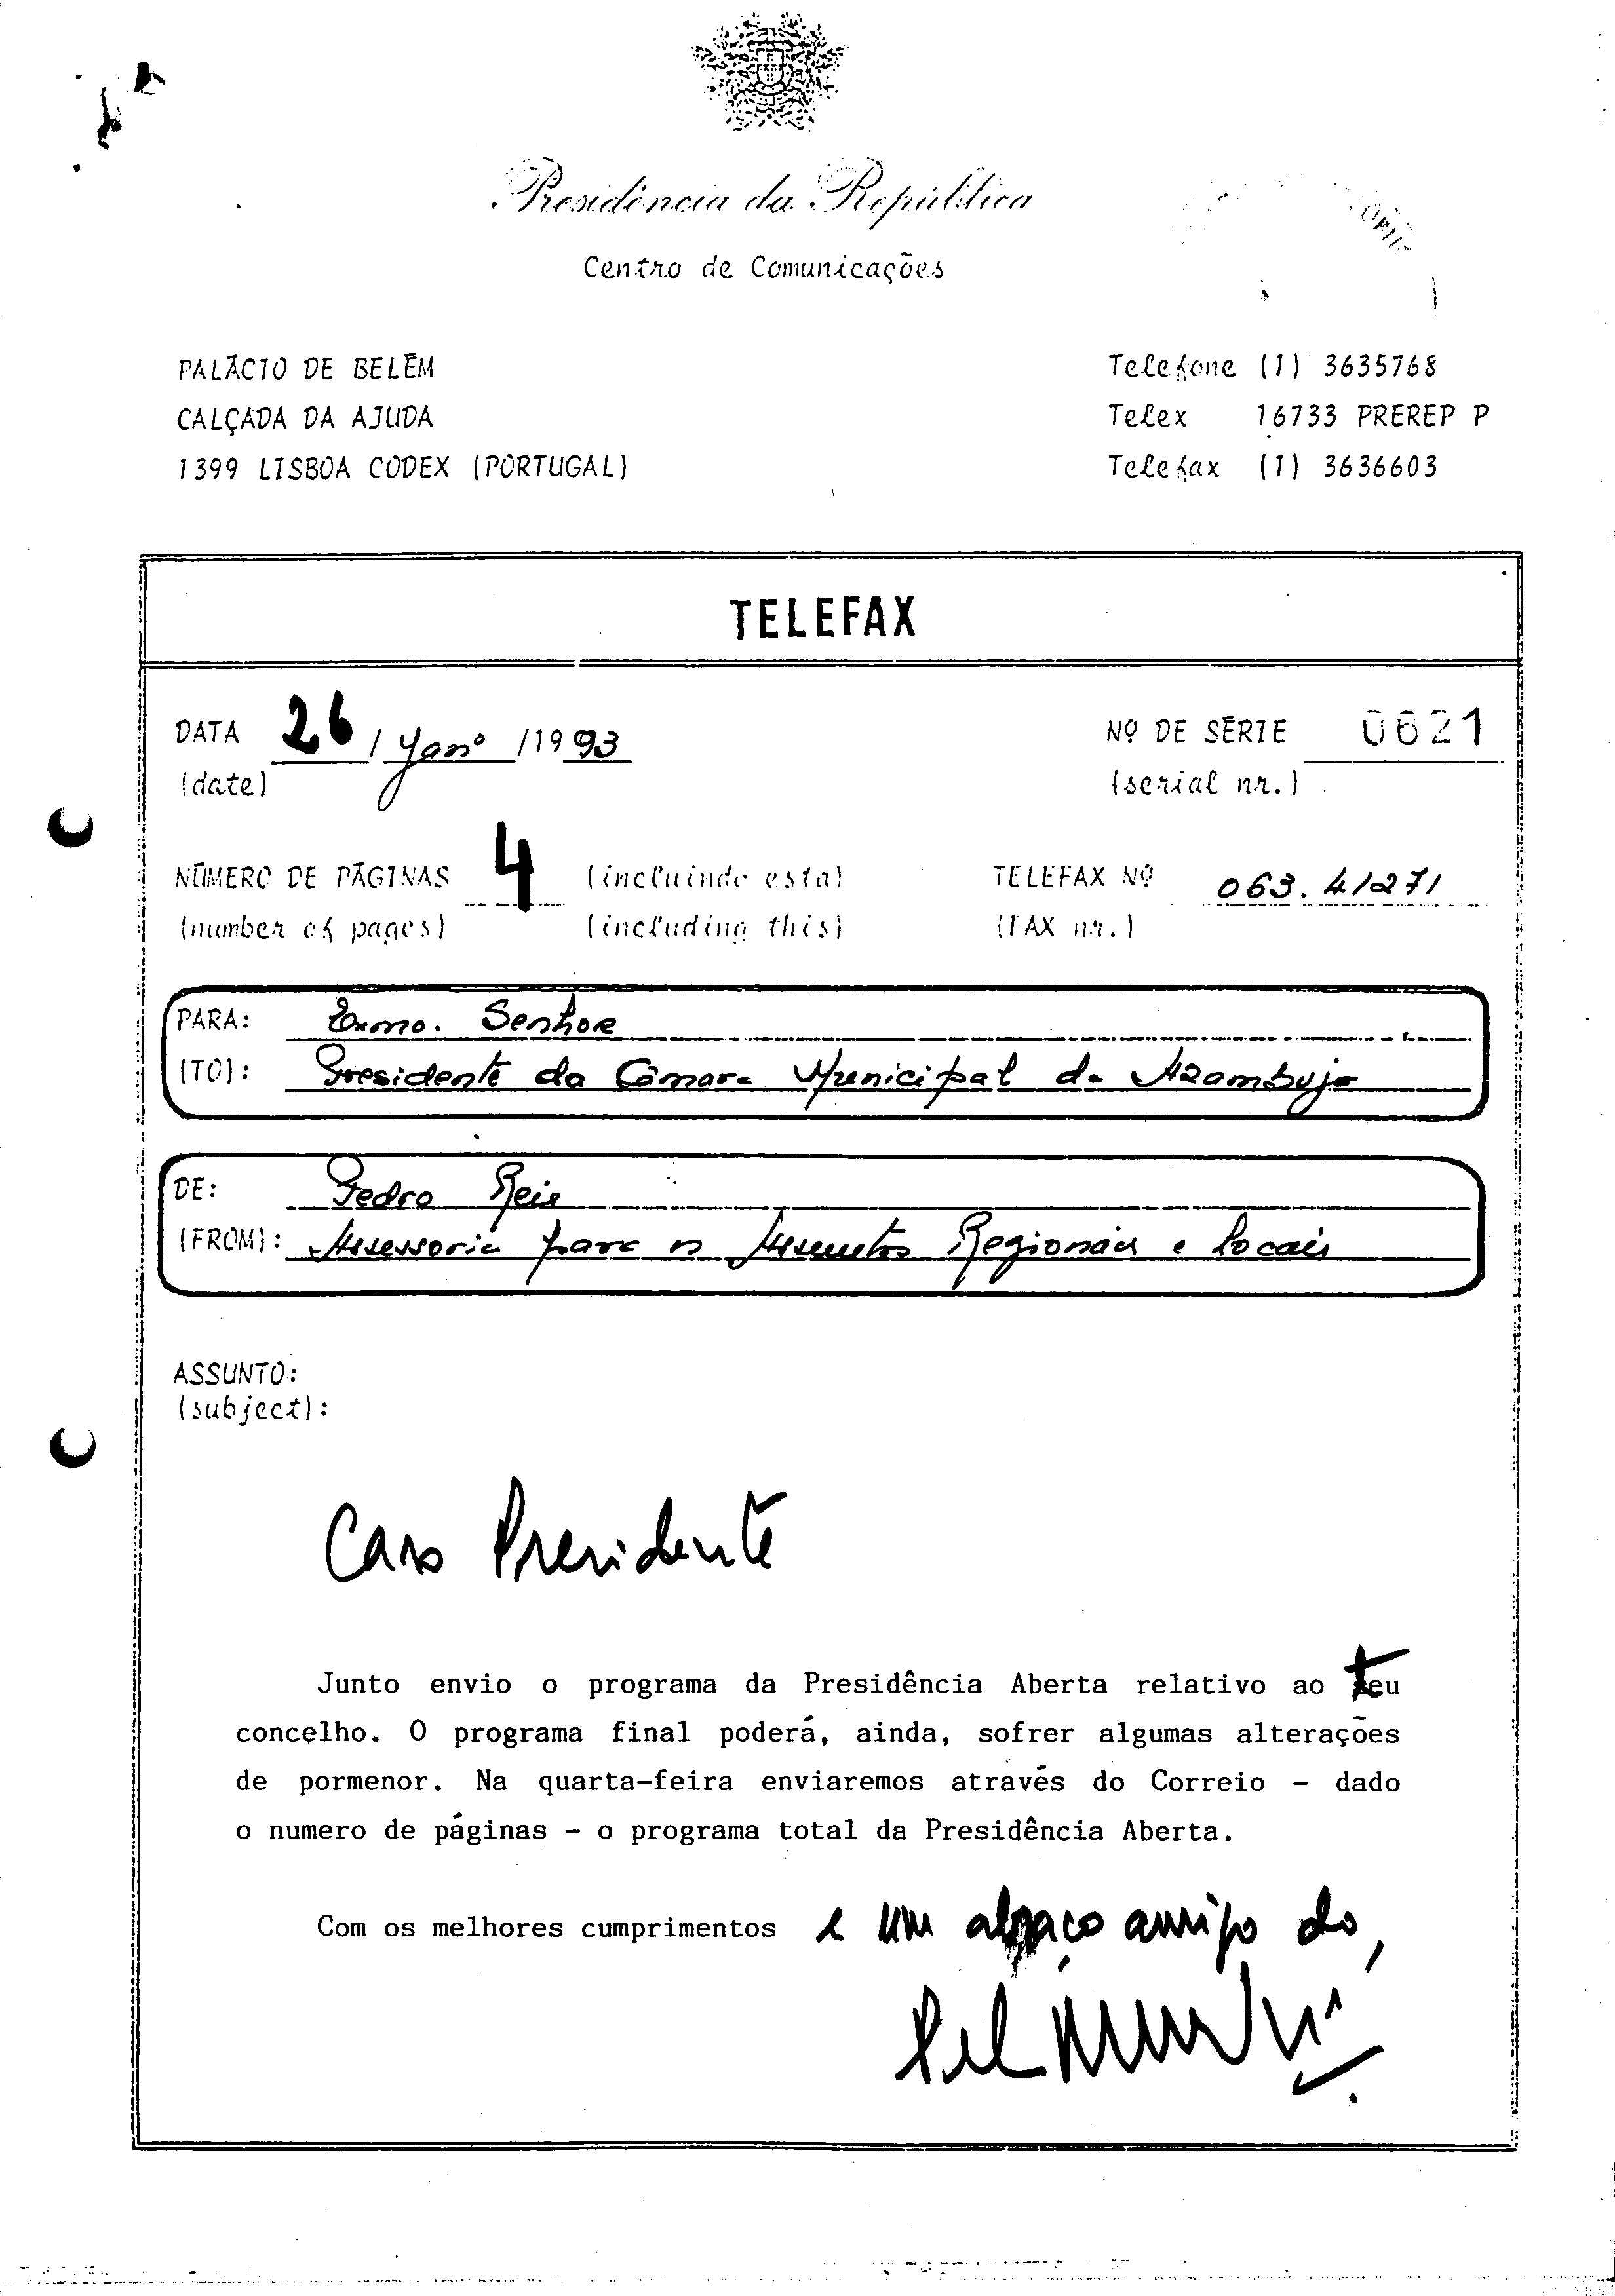 Presidência da República
Centro de Comunicações
PALÁCIO DE BELÉM
CALÇADA DA AJUDA
1399 LISBOA CODEX (PORTUGAL)
Telefone (1) 3635768
Telex 16733 PREREP P
Telefax (1) 3636603
TELEFAX
DATA 26 / Janº /1993
(date)
Nº DE SÉRIE 0621
(serial nr.)
NÚMERO DE PÁGINAS 4 (incluindo esta)
(number of pages) (including this)
TELEFAX Nº 063.41271
(FAX nr.)
PARA: Exmo. Senhor
(TO): Presidente da Câmara Municipal da Azambuja
DE: Pedro Reis
(FROM): Assessoria para os Assuntos Regionais e Locais
ASSUNTO:
(subject):
Caro Presidente
Junto envio o programa da Presidência Aberta relativo ao teu
concelho. O programa final poderá, ainda, sofrer algumas alterações
de pormenor. Na quarta-feira enviaremos através do Correio - dado
o numero de páginas - o programa total da Presidência Aberta.
Com os melhores cumprimentos e um abraço amigo do,